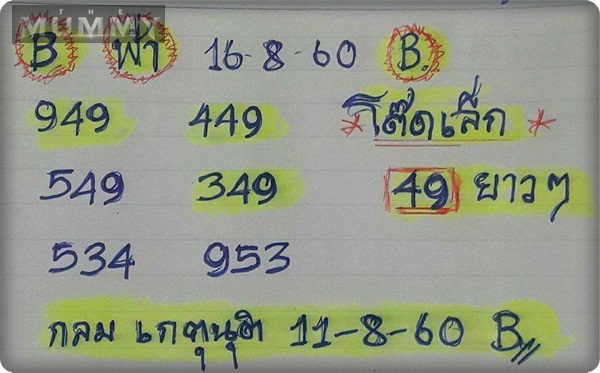 THE MUMMY
B ฟ้า 16-8-60 B.
949 449 *โต๊ดเล็ก*
549 349 49 ยาวๆ
534 953
กลม เกตุนุติ 11-8-60 B